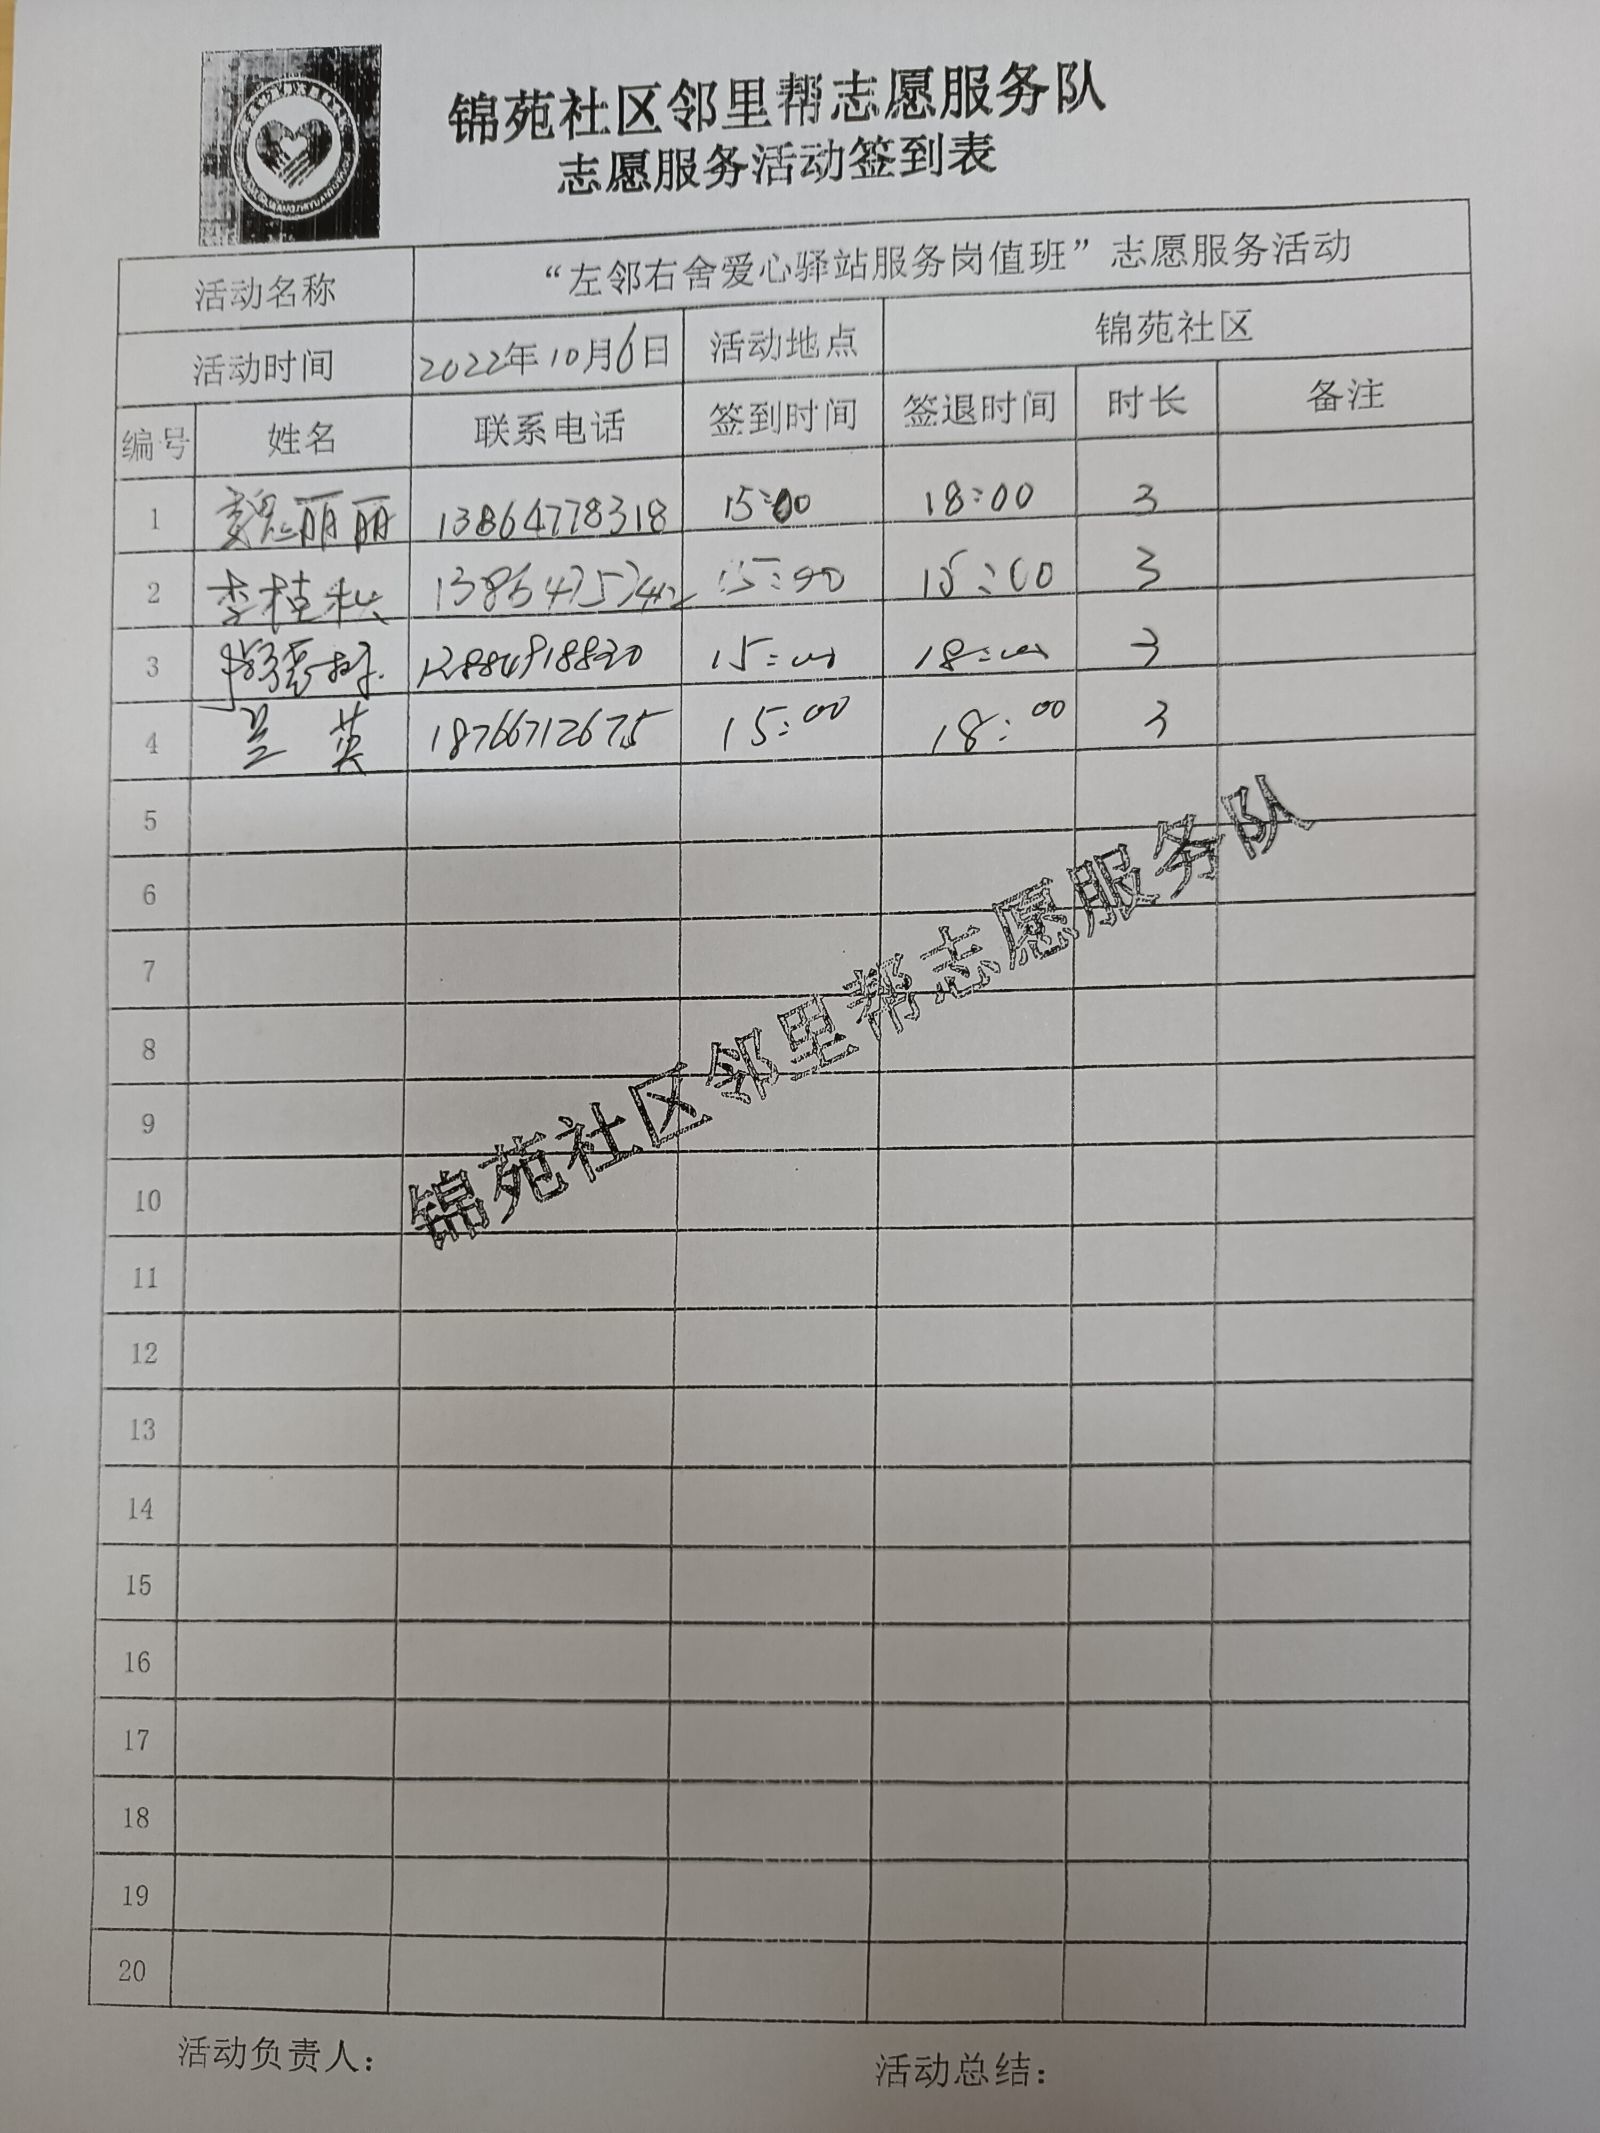 锦苑社区邻里帮志愿服务队
志愿服务活动签到表
活动名称 “左邻右舍爱心驿站服务岗值班”志愿服务活动
活动时间 2022年10月6日 活动地点 锦苑社区
编号 姓名 联系电话 签到时间 签退时间 时长 备注
1 魏丽丽 13864778318 15:00 18:00 3
2 李桂秋 15:00 15:00 3
3 15:00 18:00 3
4 兰英 18766712675 15:00 18:00 3
5
6
7
8
9
10
11
12
13
14
15
16
17
18
19
20
锦苑社区邻里帮志愿服务队
活动负责人: 活动总结: